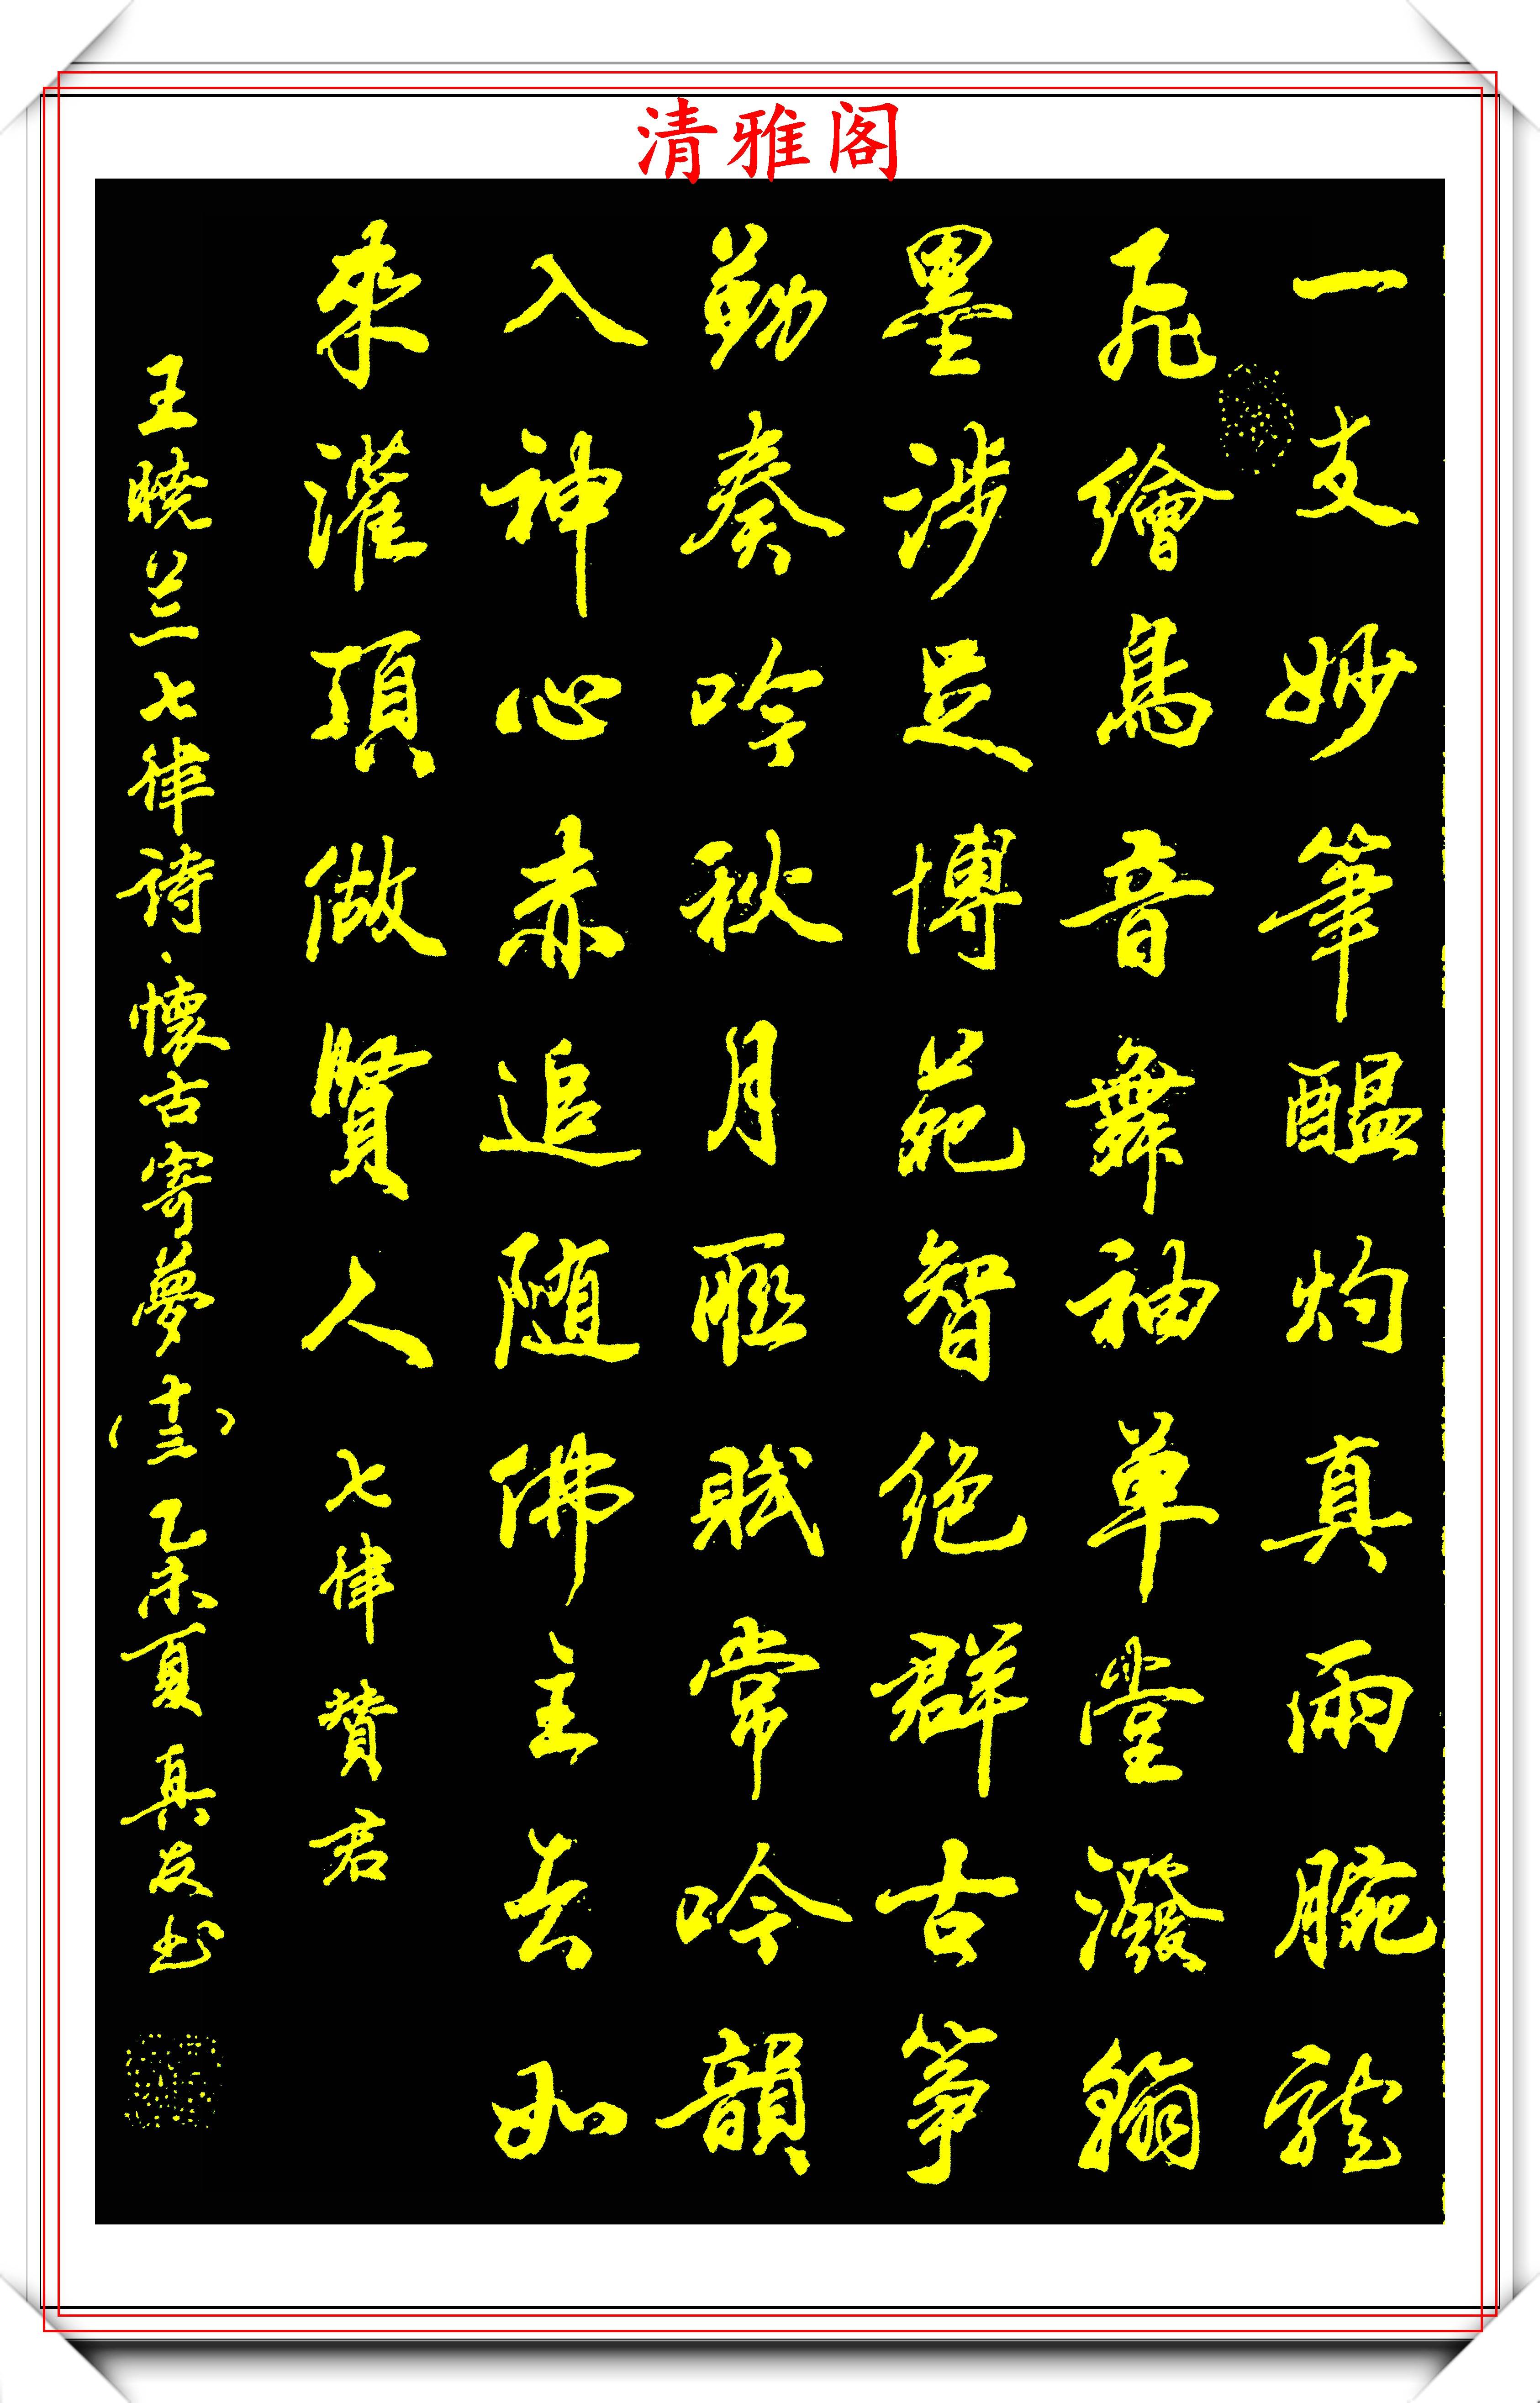 清雅阁
一支妙筆醖灼真雨腕龍
飛繪鳥音舞袖单堂潑翰
墨涉足博苑智绝群古筝
勤奏吟秋月賦常吟韻
入神心赤追随佛主去如
來灌頂做賢人 七律 贊君
王晓兰七律诗·懷古寄夢(十三)乙未夏 真书